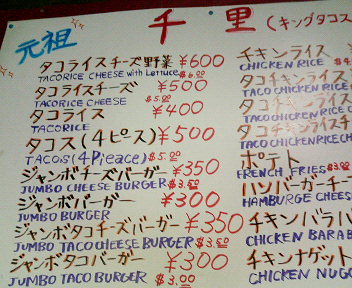 元祖 千里(キングタコス
タコライスチーズ野菜 ¥600
TACORICE CHEESE with Lettuce $6.00
タコライスチーズ ¥500
TACORICE CHEESE $5.00
タコライス ¥400
TACORICE
タコス(4ピス) ¥500
TACOS(4Pieace) $5.00
ジャンボチーズバーガー ¥350
JUMBO CHEESE BURGER $3.50
ジャンボバーガー ¥300
JUMBO BURGER
ジャンボタコチーズバーガー ¥350
JUMBO TACO CHEESE BURGER $3.50
ジャンボタコバーガー ¥300
JUMBO TACO BURGER $3.00
チキンライス
CHICKEN RICE
タコチキンライス
TACO CHICKEN RICE
タコチキンライ
TACO CHICKEN RICE
タコチキンライ
TACO CHICKEN
ポテト
FRENCH FRIES $3.00
ハンバーガーチー
HAMBURGE CHEES
チキンバラバラ
CHICKEN BARAB
チキンナゲット
CHICKEN NUGG